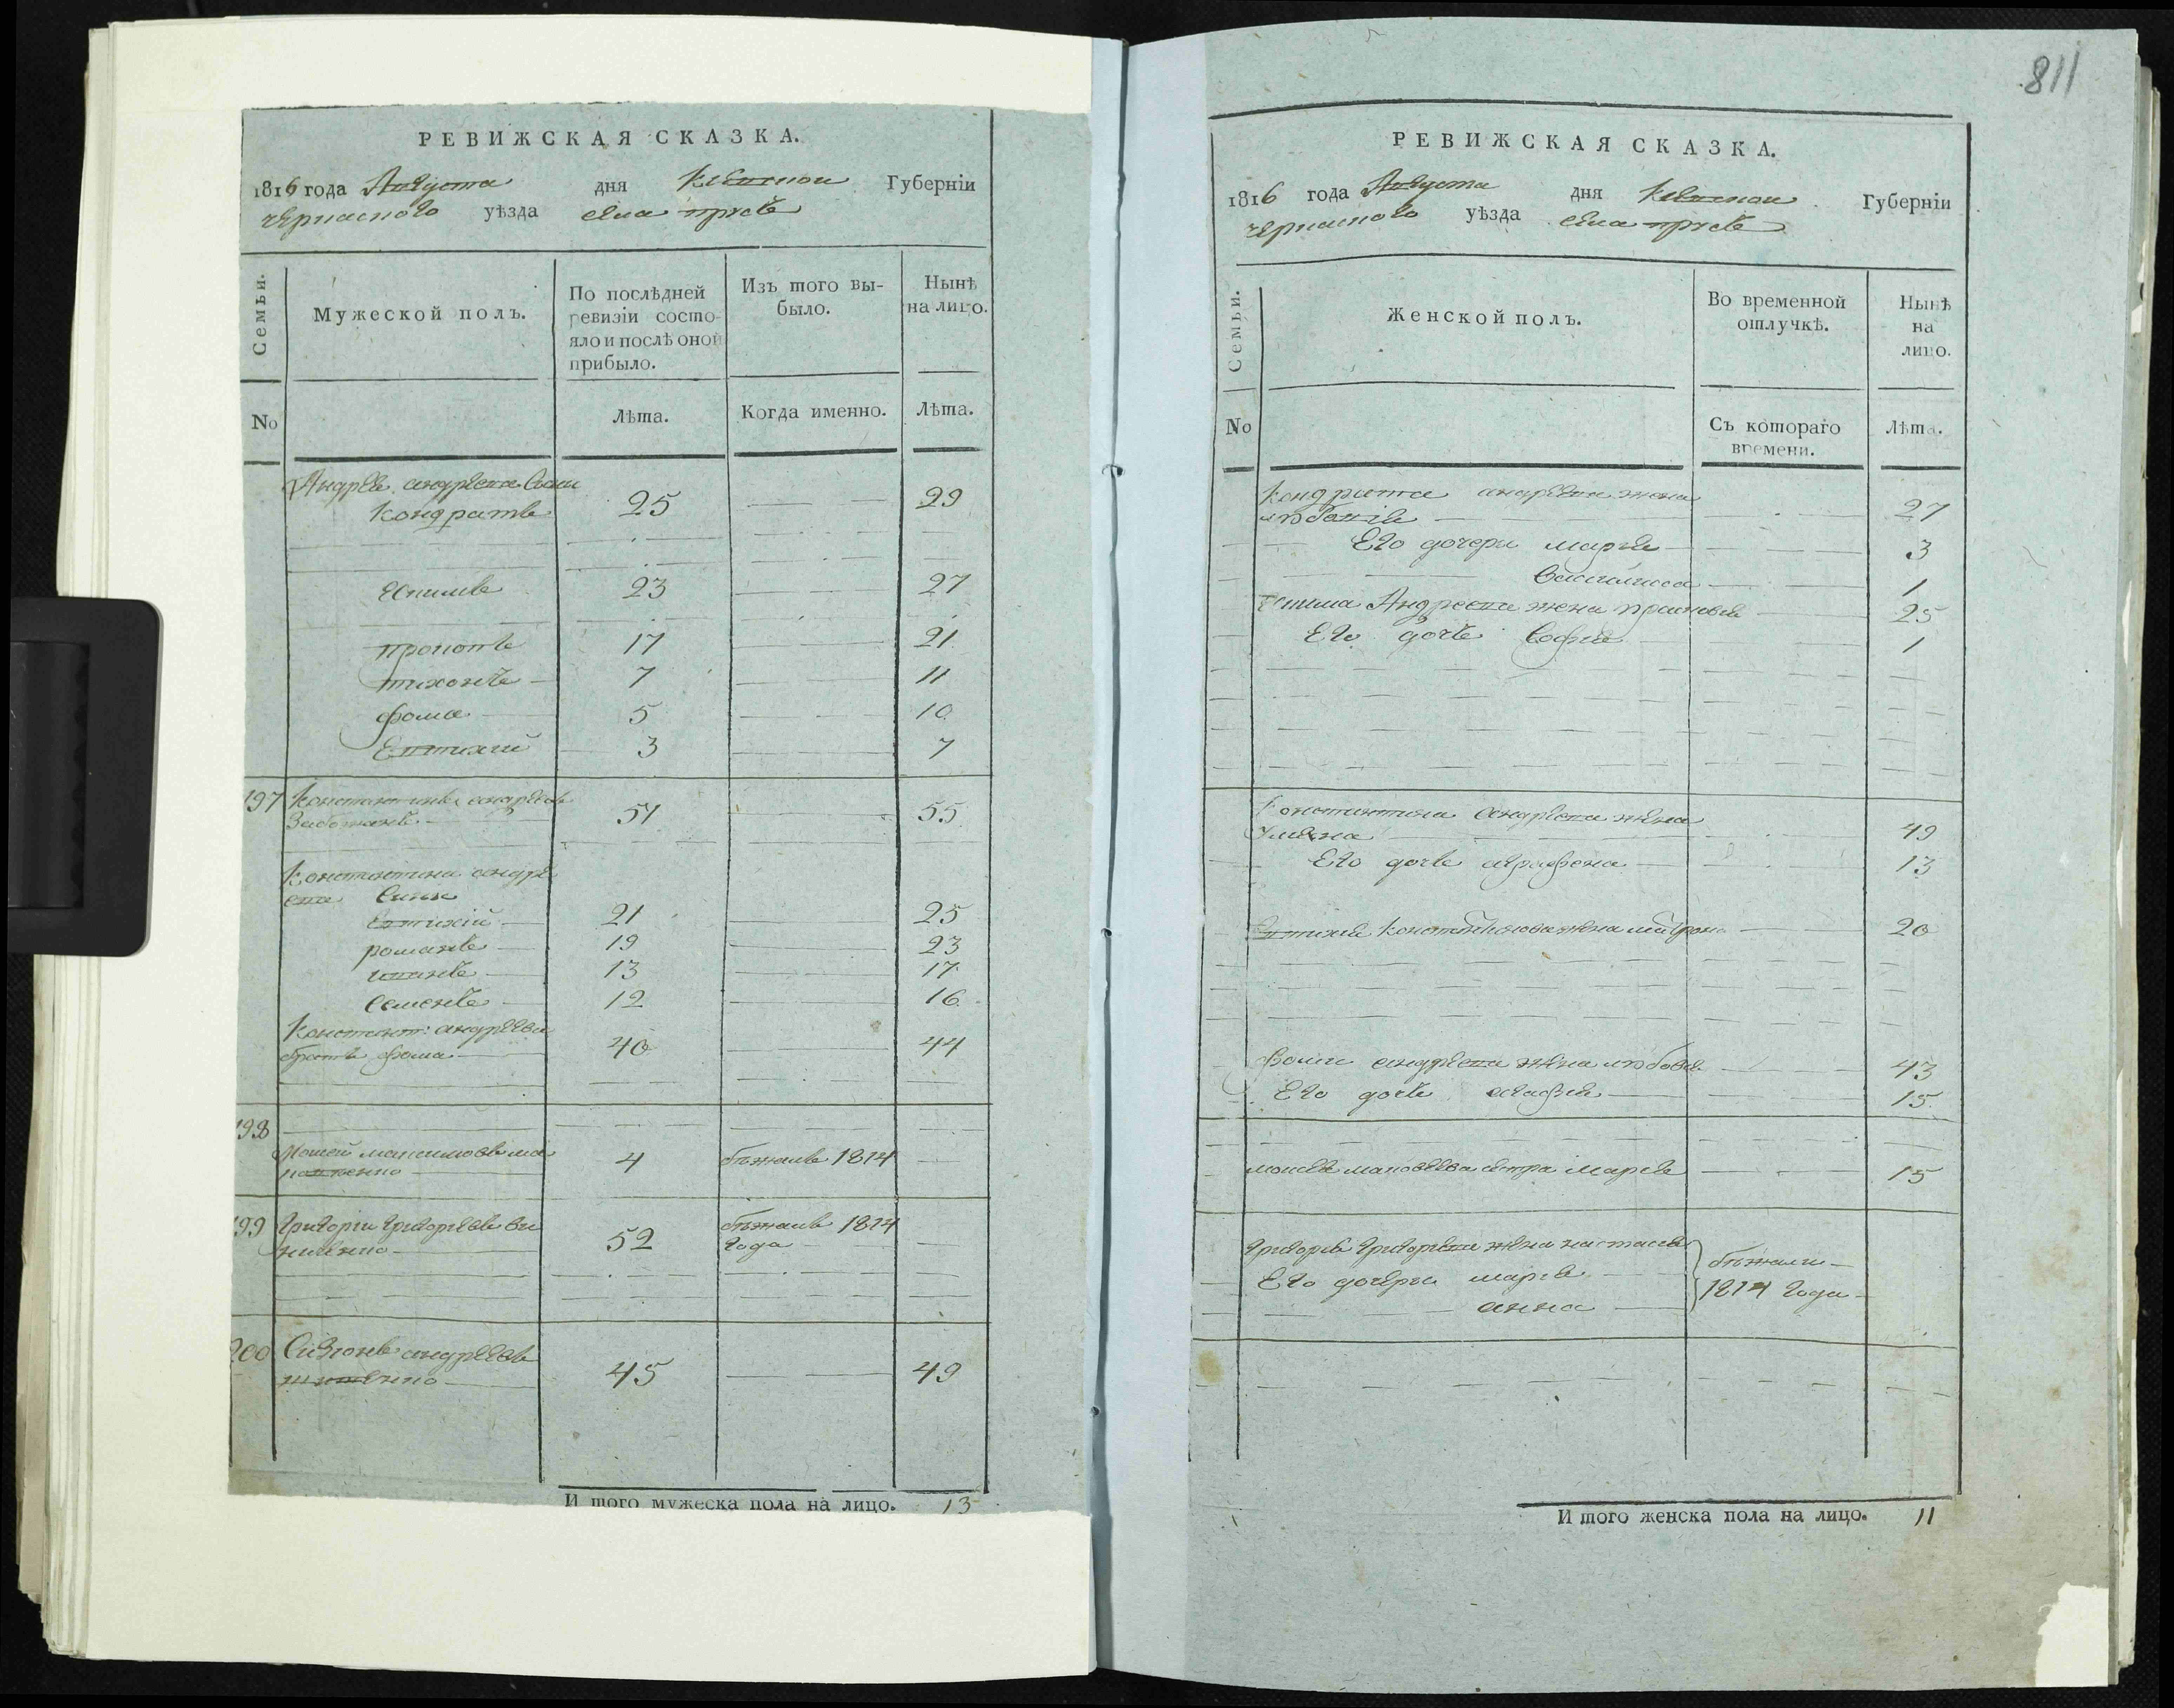 811
РЕВИЖСКАЯ СКАЗКА.
1816 года Августа дня Киевской Губернїи
черкаского уѣзда села прусъ
Семьи.
Мужеской полъ.
По послѣдней ревизїи состояло и послѣ оной прибыло.
Изъ того выбыло.
Нынѣ на лицо.
No
Лѣта.
Когда именно.
Лѣта.
Андрея андреева сыни
Кондратъ 25 29
Екимъ 23 27
прокопъ 17 21
тихонъ 7 11
фома 5 10
Евтихий 3 7
197 Константинъ андреевъ
51 55
Константина андре
ева сыни
Евтихій 21 25
романъ 19 23
иванъ 13 17
семенъ 12 16
Констант: андреева
братъ фома 40 44
198
Моисей максимовъ
4 бѣжалъ 1814
199 Григорги григориевъ
52 бѣжалъ 1814
года
200 андреевъ
45 49
И того мужеска пола на лицо. 13
РЕВИЖСКАЯ СКАЗКА.
1816 года Августа дня Киевской Губернїи
черкаского уѣзда села прусъ
Семьи.
Женской полъ.
Во временной отлучкѣ.
Нынѣ на лицо.
No
Съ котораго времени.
Лѣта.
Кондрата андреева жена
27
Его дочери марья 3
василиса 1
Екима Андреева жена 25
Его дочь софия 1
Константина андреева жена
улияна 49
Его дочь аграфена 13
Евтихия Константинова жена 20
фоми андреева жена любовь 43
Его дочь агафия 15
моисея сестра марья 15
григория григориева жена настасия
бѣжали
Его дочери марья
1814 года
анна
И того женска пола на лицо. 11